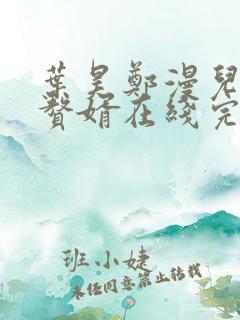 葉昊鄭漫兒
贅婿在线完
班小婕
未经同意禁止转载